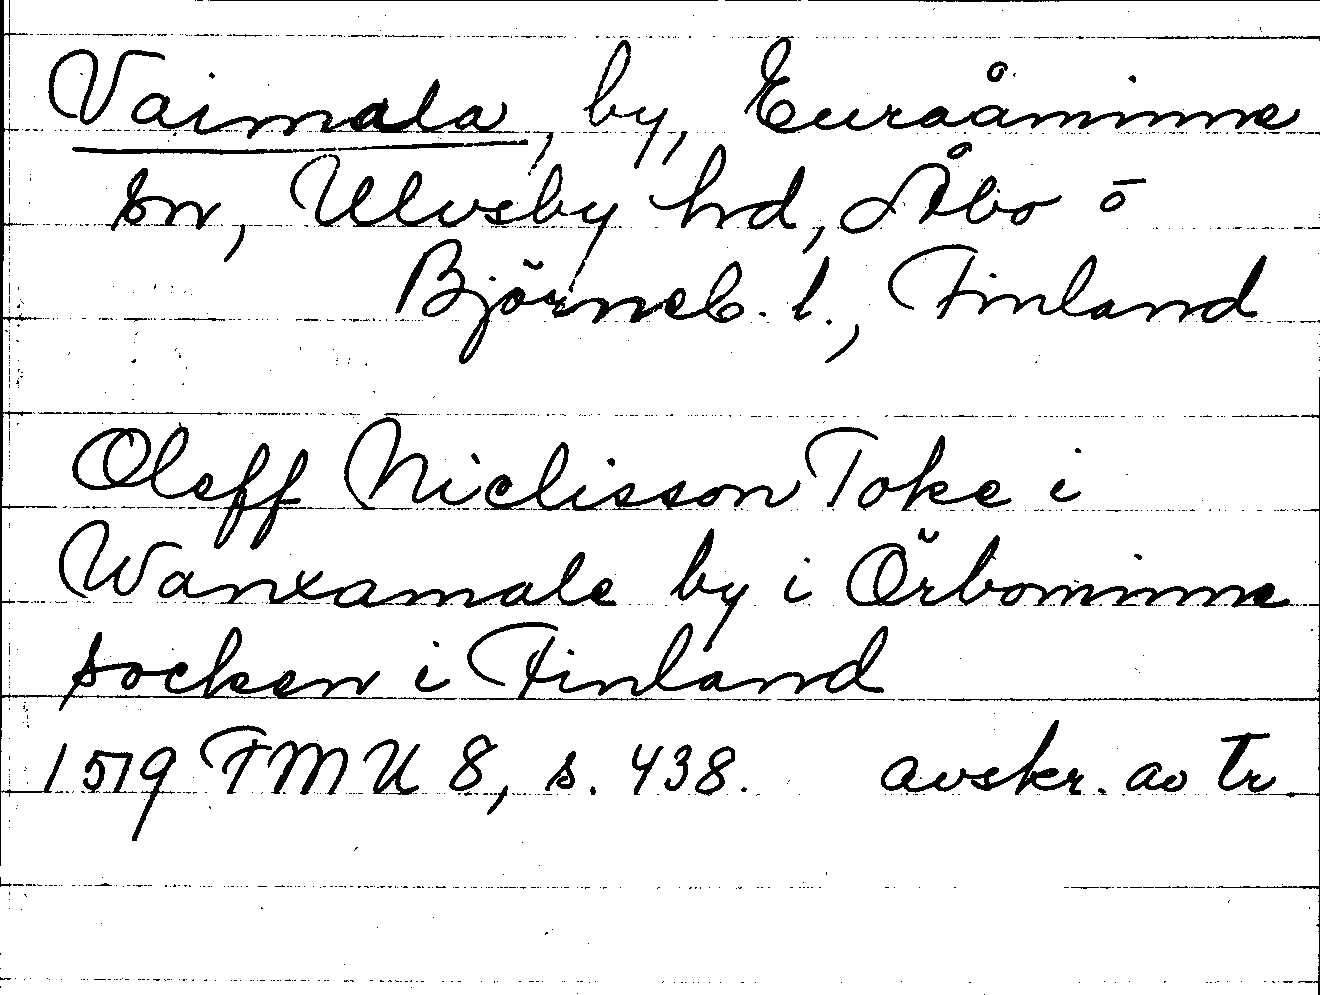 Vaimala, by, Euraåminne
sn, Ulvsby hd, Åbo o
Björneb. l., Finland
Oleff Niclisson Toke i
Wanxamale by i Örbominne
socken i Finland
1519 FMU 8, s. 438. avskr. av tr.